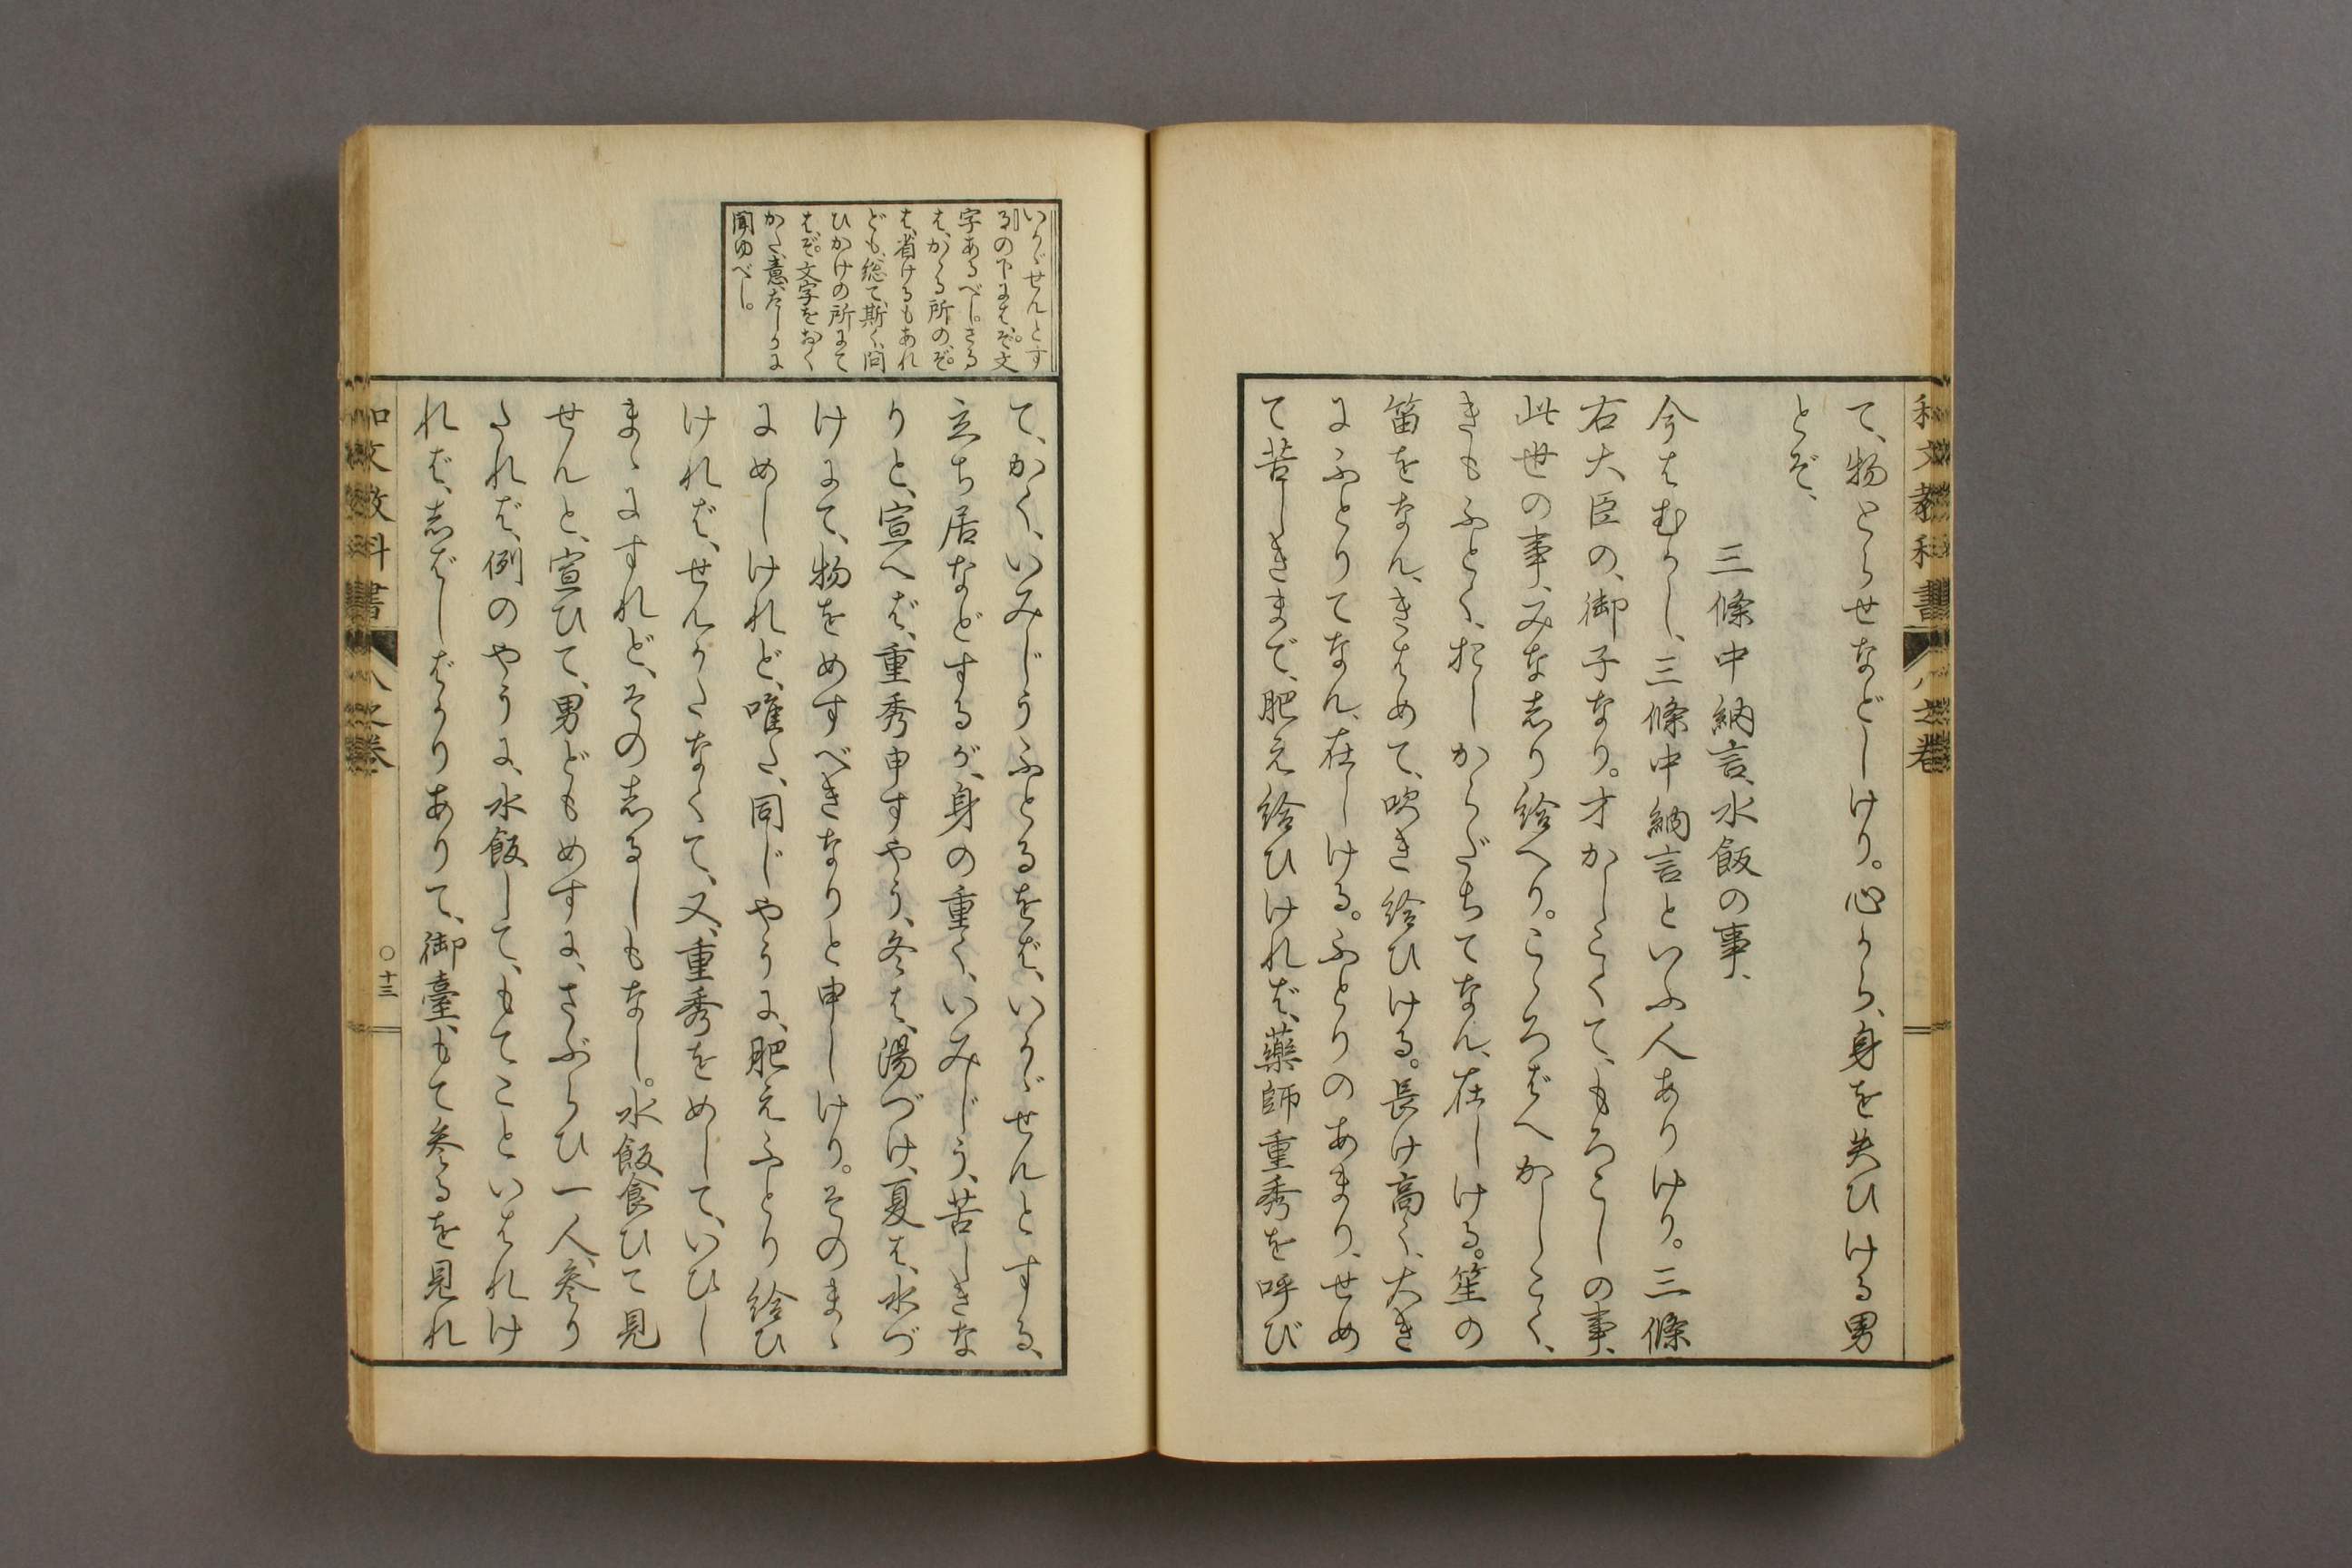 和文教科書 八之卷
て、物とらせなどしけり。心から、身を失ひける男
とぞ、
三條中納言、水飯の事、
今はむかし、三條中納言といふ人ありけり。三條
右大臣の、御子なり。才かしこくて、もろこしの事、
此世の事、みな志り給へり。こゝろばへかしこく、
きもふとく、おしからだちてなん、在しける。笙の
笛をなん、きはめて、吹き給ひける。長け高く、大き
にふとりてなん、在しける。ふとりのあまり、せめ
て苦しきまで、肥え給ひければ、藥師重秀を呼び
いかゞせんとす
る』の下には、ぞ。文
字あるべし。さる
は、かゝる所の、ぞ。
は、省けるもあれ
ども、総て、斯く、問
ひかけの所にて
は、ぞ。文字をおく
かた、意、たしかに
聞ゆべし。
て、かく、いみじうふとるをば、いかゞせんとする、
立ち居などするが、身の重く、いみじう、苦しきな
りと、宣へば、重秀申すやう、冬は、湯づけ、夏は、水づ
けにて、物をめすべきなりと申しけり。そのまゝ
にめしけれど、唯た、同じやうに、肥えふとり給ひ
ければ、せんかたなくて、又、重秀をめして、いひし
まゝにすれど、その志るしもなし。水飯食ひて見
せんと、宣ひて、男どもめすに、さぶらひ一人、參り
たれば、例のやうに、水飯して、もてこといはれけ
れば、志ばしばかりありて、御臺、もて參るを見れ
和文教科書 八之卷 ○十三